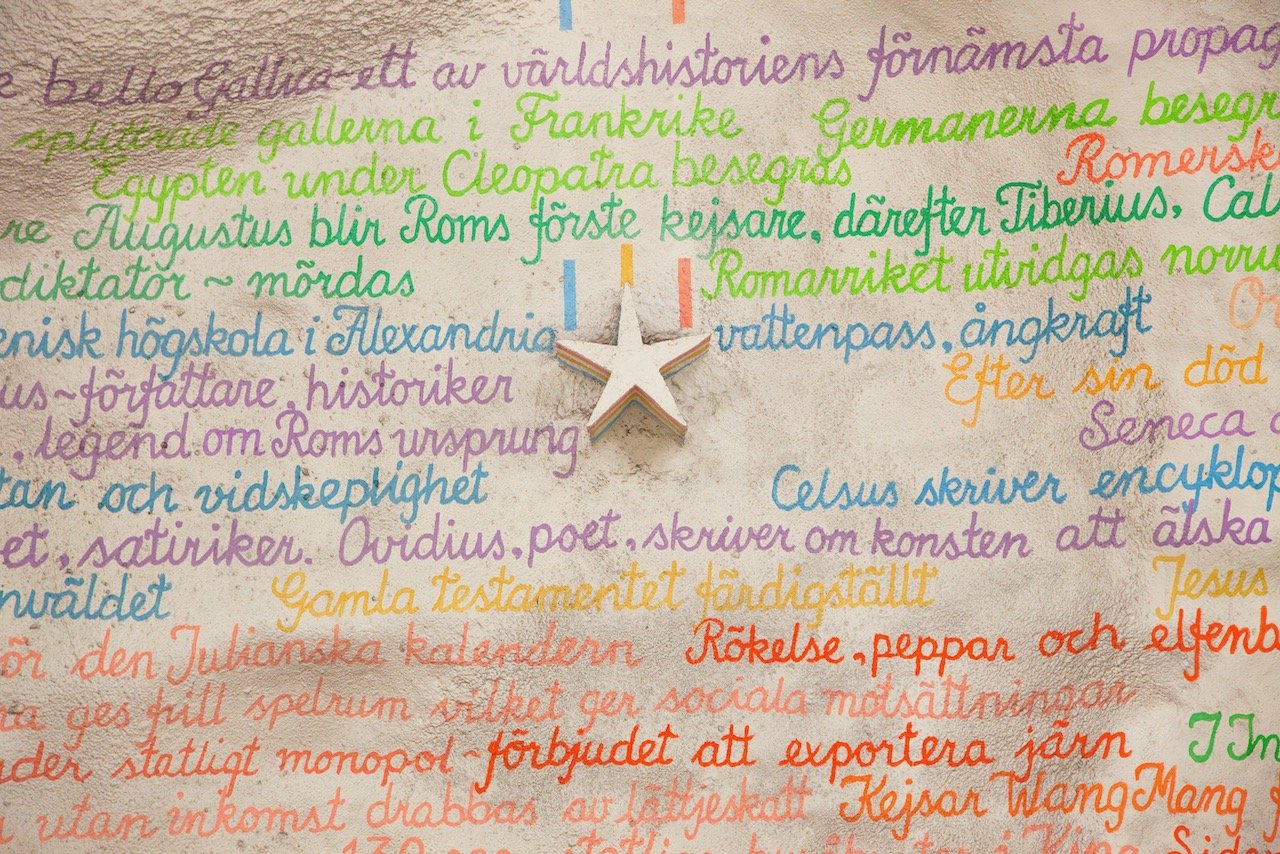 bello Gallica-ett av världshistoriens förnämsta propag
splittrade gallerna i Frankrike Germanerna besegr
Egypten under Cleopatra besegras Romersk
re Augustus blir Roms förste kejsare, därefter Tiberius, Cal
diktator ~ mördas Romarriket utvidgas norru
enisk högskola i Alexandria vattenpass, ångkraft
us~författare, historiker Efter sin död
, legend om Roms ursprung Seneca
tan och vidskeplighet Celsus skriver encyklop
et, satiriker. Ovidius, poet, skriver om konsten att älska
nväldet Gamla testamentet färdigställt Jesus
ör den Julianska kalendern Rökelse, peppar och elfenb
ra ges fritt spelrum vilket ger sociala motsättningar
nder statligt monopol~förbjudet att exportera järn I Im
utan inkomst drabbas av lättjeskatt Kejsar Wang Mang
i Kina